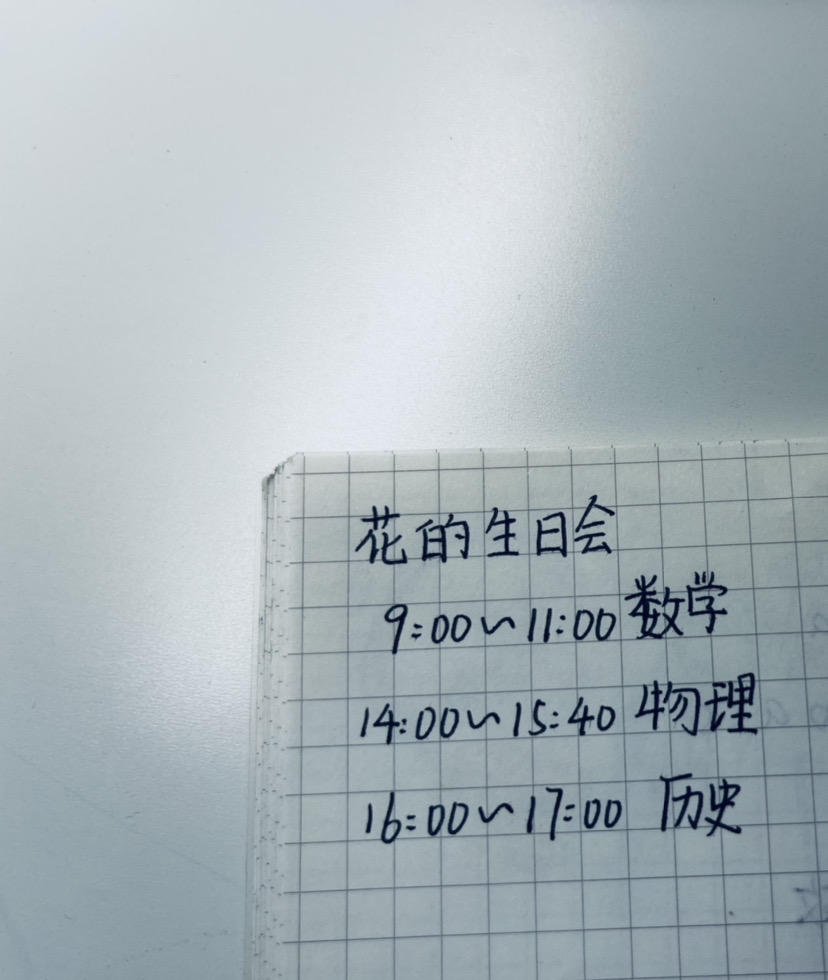 花的生日会
9:00~11:00 数学
14:00~15:40 物理
16:00~17:00 历史